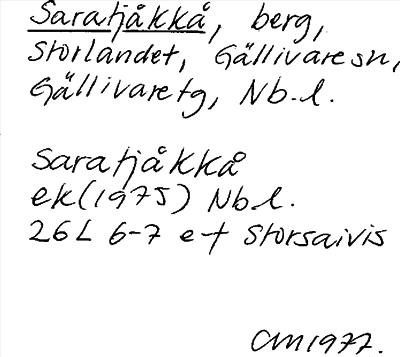 Saratjåkkå, berg,
Storlandet, Gällivare sn,
Gällivare tg, Nb.l.
Saratjåkkå
ek (1975) Nb.l.
26L 6-7 e-f Storsaivis
CM 1977.